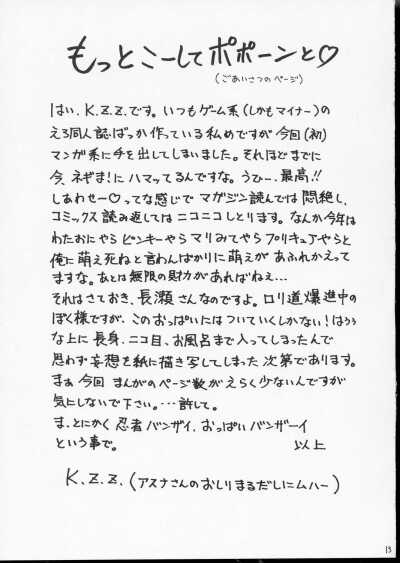 もっとこーしてポポーンと♡
(ごあいさつのページ)
はい、K.Z.Z.です。いつもゲーム系(しかもマイナー)の
えろ同人誌ばっか作っている私めですが今回(初)
マンガ系に手を出してしまいました。それほどまでに
今、ネギま!にハマッてるんですな。うひー、最高!!
しあわせー♡ってな感じでマガジン読んでは悶絶し、
コミックス読み返してはニコニコしとります。なんか今年は
わたおにやらピンキーやらマリみてやらプリキュアやらと
俺に萌え死ねと言わんばかりに萌えがあふれかえって
ますな。あとは無限の財力があればねえ…
それはさておき、長瀬さんなのですよ。ロリ道爆進中の
ぼく様ですが、このおっぱいにはついていくしかない!はうぅ
な上に長身、ニコ目、お風呂まで入ってしまったんで
思わず妄想を紙に描き写してしまった次第であります。
まぁ今回まんがのページ数がえらく少ないんですが
気にしないで下さい。…許して。
ま、とにかく忍者バンザイ、おっぱいバンザーイ
という事で。 以上
K.Z.Z.(アスナさんのおしりまるだしにムハー)
13